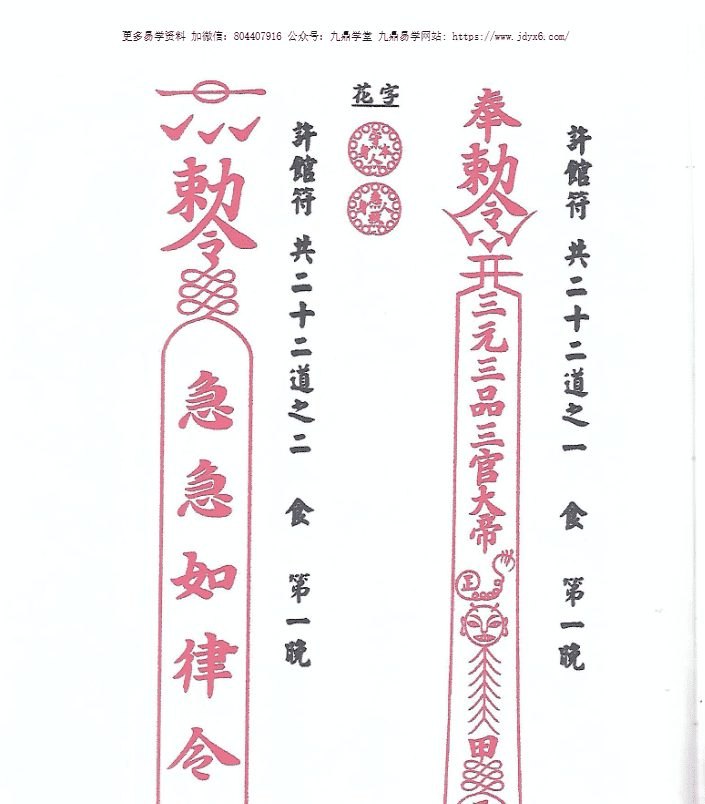 更多易学资料 加微信：804407916 公众号：九鼎学堂 九鼎易学网站: https://www.jdyx6.com/
許館符 共二十二道之一 食 第一晚
奉
勅令
三元三品三官大帝
正
甲
花字
許館符 共二十二道之二 食 第一晚
勅令
急急如律令